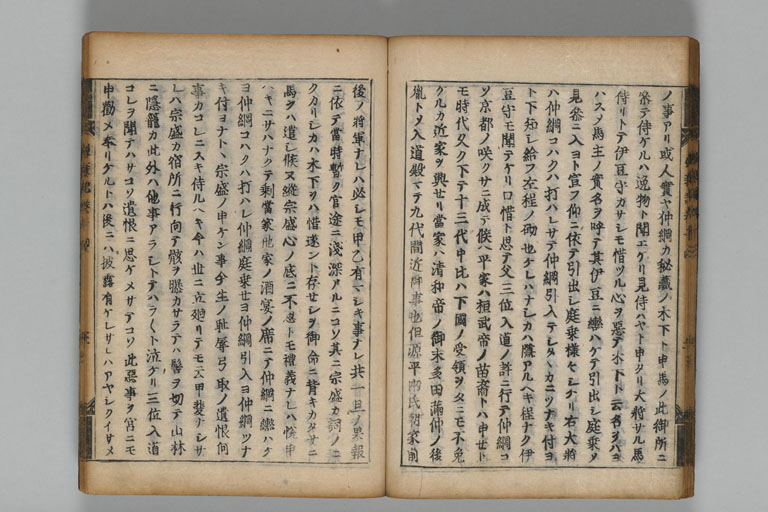 ノ事アリ或人實ヤ仲綱カ秘藏ノ木下ト申馬ノ此御所ニ
繋テ侍ケルハ逸物ト聞エケリ見侍ハヤト申タリ大將サル馬
侍リトテ伊豆守カサシモ惜ツル心ヲ惡テ木下ト云名ヲハヨ
ハスノ馬主ノ實名ヲ呼テ其伊豆ニ轡ハケテ引出シ庭乗ノ
見參ニ入ヨト宣フ仰ニ依テ引出シ庭乗樣セシケリ右大將
ハ仲綱コハクハ打ハレサテ仲綱引入テシタヽカニツナキ付ヨ
ト下知シ給フ左程ノ砌也ケレハナシカハ隱アルヘキ程ナク伊
豆守モ聞テケリ口惜ト思テ父三位入道ノ許ニ行テ仲綱コ
ソ京都ノ咲クサニ成テ候ヘ平家ハ桓武帝ノ苗裔トハ申セト
モ時代久ク下テ十三代中比ハ下國ノ受領ヲタニモ不免
クルカ近家ヲ興セリ當家ハ清和帝ノ御末多田滿仲ノ後
胤トメ入道殿マテ九代間近御事也但源平兩氏朝家前
後ノ將軍ナレハ必シモ甲乙有マシキ事ナレ共一旦ノ果報
ニ依テ當時暫ク官途ニ淺深アルニコソ其ニ宗盛カ詞ノニ
クカリシカハ木下ヲハ惜遂ント存セシヲ御命ニ背キカタサニ
馬ヲハ遣シ候ヌ縱宗盛心ノ底ニ不思トモ禮義ナレハ悦申
ヘキニサハナクテ剩當家他家ノ酒宴ノ席ニテ仲綱ニ轡ハケ
ヨ仲綱コハクハ打ハレ仲綱庭乗セヨ仲綱引入ヨ仲綱ツナ
キ付ヨナトヽ宗盛ノ申ケン事今生ノ耻辱弓取ノ遺恨何
事カコレニスキ侍ルヘキ今ハ世ニ立廻リテモ云甲斐ナシサ
レハ宗盛カ宿所ニ行向テ骸ヲ懸カサラテハ髻ヲ切テ山林
ニ隱籠カ此外ハ他事アラシトテハラ〳〵ト泣ケリ三位入道
コレヲ聞ナハサコソ遺恨ニ思ケメサテコソ此惡事ヲ宮ニモ
申勸メ奉リケルトハ後ニハ披露有ケレサレハアヤシクイサメ